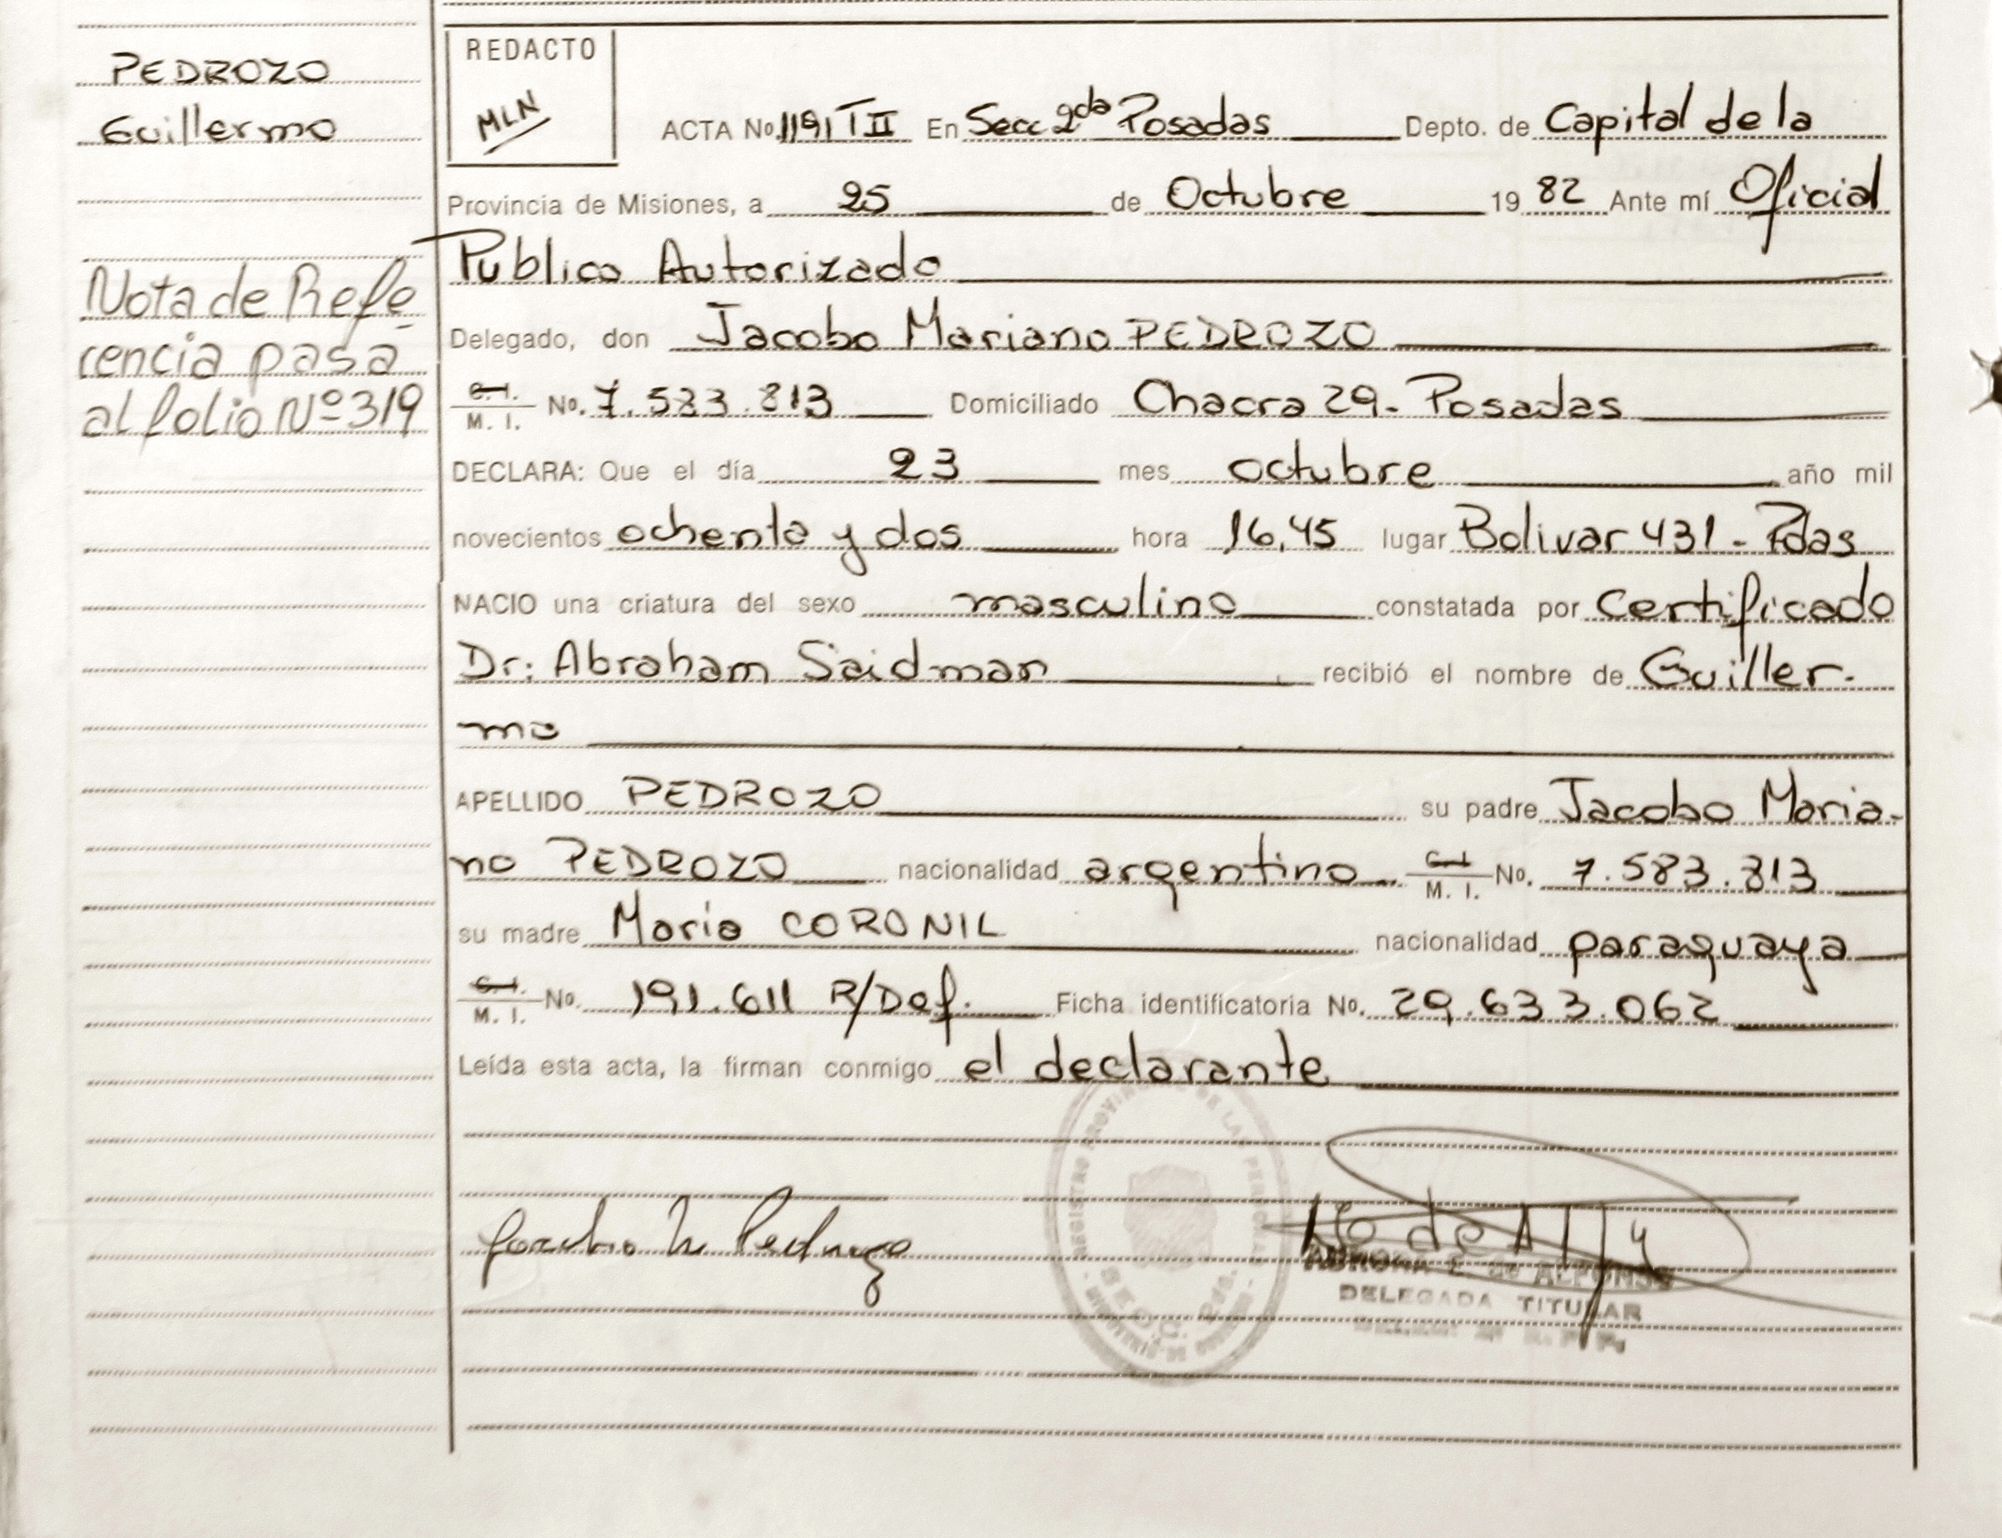 PEDROZO
Guillermo
Nota de Refe
rencia pasa
al folio Nº 319
REDACTO
MLN
ACTA No. 1191 T II En Secc 2da Posadas Depto. de Capital de la
Provincia de Misiones, a 25 de Octubre 19 82 Ante mí Oficial
Publico Autorizado
Delegado, don Jacobo Mariano PEDROZO
C. I. M. I. No. 7.583.813 Domiciliado Chacra 29- Posadas
DECLARA: Que el día 23 mes octubre año mil
novecientos ochenta y dos hora 16,45 lugar Bolivar 431 - Pdas
NACIO una criatura del sexo masculino constatada por Certificado
Dr: Abraham Saidman recibió el nombre de Guiller-
mo
APELLIDO PEDROZO su padre Jacobo Maria-
no PEDROZO nacionalidad argentino C. I. M. I. No. 7.583.813
su madre Maria CORONIL nacionalidad paraguaya
C. I. M. I. No. 191.611 R/Def. Ficha identificatoria No. 29.633.062
Leída esta acta, la firman conmigo el declarante
REGISTRO PROVINCIAL DE LAS PERSONAS
AURORA E. de ALFONSO
DELEGADA TITULAR